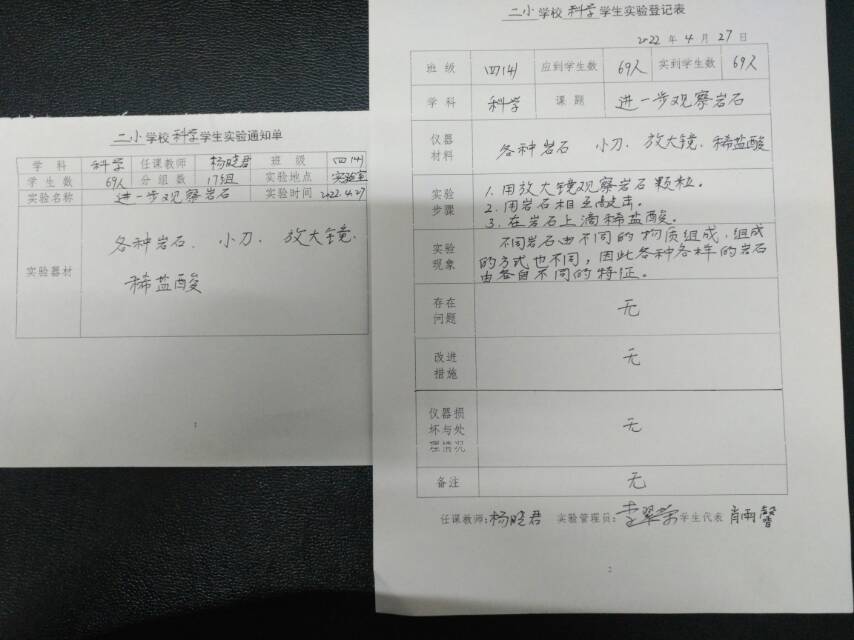 二小学校科学学生实验通知单
学科 科学 任课教师 杨晓君 班级 四(4)
学生数 69人 分组数 17组 实验地点 实验室
实验名称 进一步观察岩石 实验时间 2022.4.27
各种岩石、小刀、放大镜、
实验器材
稀盐酸
1
二小学校科学学生实验登记表
2022年4月27日
班级 四(4) 应到学生数 69人 实到学生数 69人
学科 科学 课题 进一步观察岩石
仪器
材料
各种岩石 小刀、放大镜、稀盐酸
实验
步骤
1.用放大镜观察岩石颗粒。
2.用岩石相互敲击。
3.在岩石上滴稀盐酸。
实验
现象
不同岩石由不同的物质组成,组成
的方式也不同,因此各种各样的岩石
由各自不同的特征。
存在
问题
无
改进
措施
无
仪器损
坏与处
理情况
无
备注 无
任课教师:杨晓君 实验管理员:李翠荣 学生代表 肖雨馨
2